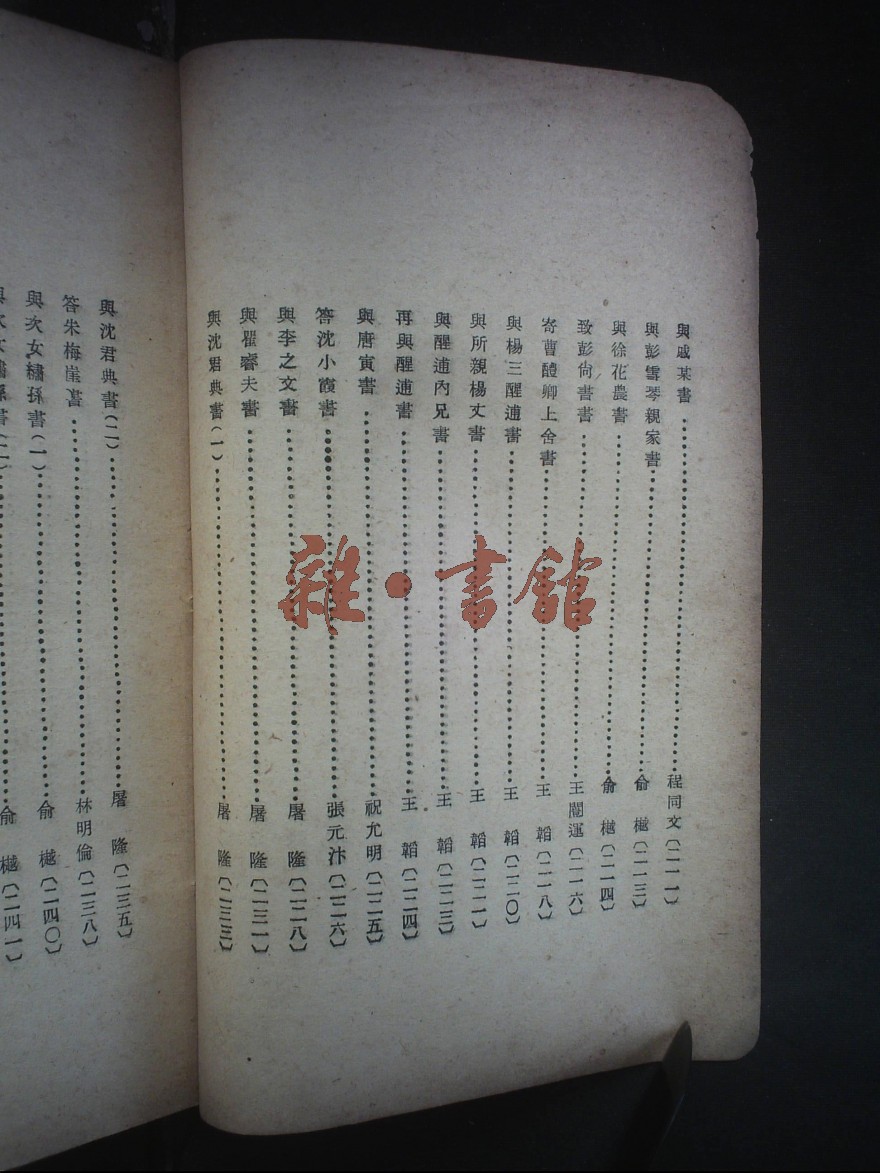 與戚某書 程同文〔二一一〕
與彭雪琴親家書 俞樾〔二一三〕
與徐花農書 俞樾〔二一四〕
致彭尙書書 王闓運〔二一六〕
寄曹醴卿上舍書 王韜〔二一八〕
與楊三醒逋書 王韜〔二二〇〕
與所親楊丈書 王韜〔二二一〕
與醒逋內兄書 王韜〔二二三〕
再與醒逋書 王韜〔二二四〕
與唐寅書 祝允明〔二二五〕
答沈小霞書 張元汴〔二二六〕
與李之文書 屠隆〔二二八〕
與瞿睿夫書 屠隆〔二三一〕
與沈君典書(一) 屠隆〔二三三〕
與沈君典書(二) 屠隆〔二三五〕
答朱梅崖書 林明倫〔二三八〕
與次女繡孫書(一) 俞樾〔二四〇〕
與次女繡孫書(二) 俞樾〔二四一〕
雜·書館